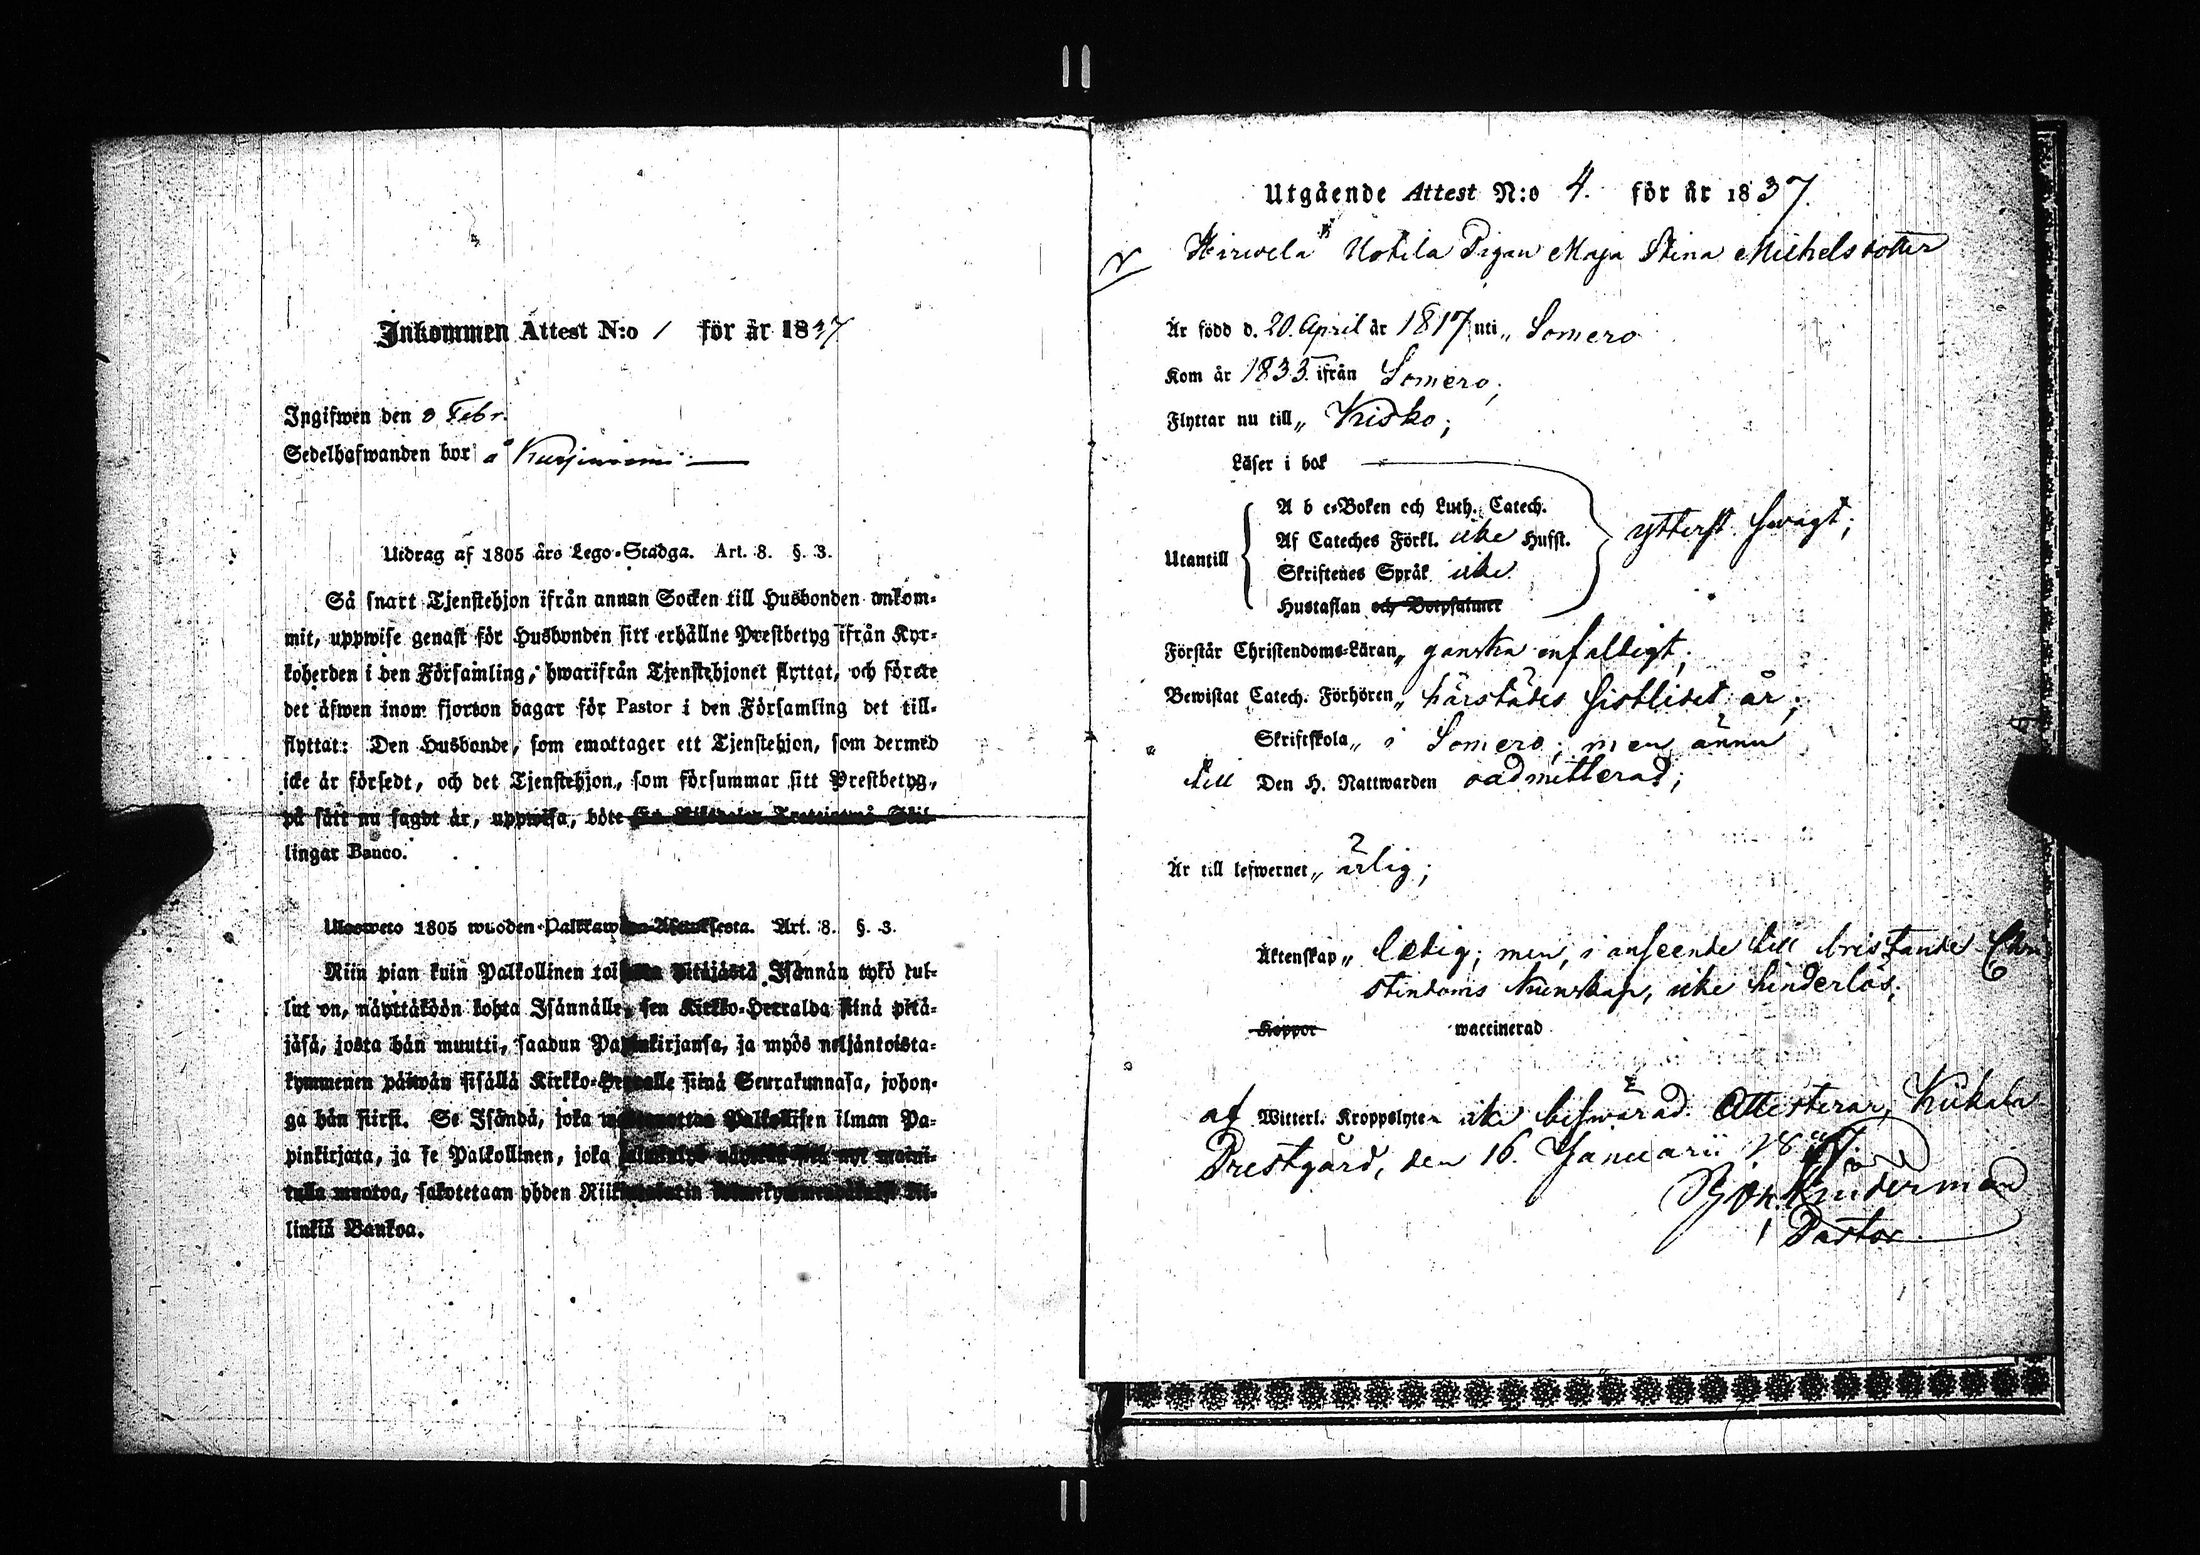 Inkommen Attest N:o 1 för år 1837
Ingifwen den 8 Febr.
Sedelhafwanden bor å
Utdrag af 1805 års Lego-Stadga. Art. 8. §. 3.
Så snart Tjenstehjon ifrån annan Socken till Husbonden ankom-
mit, uppwise genast för Husbonden sitt erhållne Prestbetyg ifrån Kyr-
koherden i den Församling, hwarifrån Tjenstehjonet flyttat, och förete
det äfwen inom fjorton dagar för Pastor i den Församling det till-
flyttat: Den Husbonde, som emottager ett Tjenstehjon, som dermed
icke är försedt, och det Tjenstehjon, som försummar sitt Prestbetyg,
på sätt nu sagdt är, uppwisa, böte Skil-
lingar Banco.
Ulosweto 1805 wuoden Palkkawäen-Asetuksesta. Art. 8. §. 3.
Niin pian kuin Palkollinen toisesta pitäjästä Isännän tykö tul-
lut on, näyttäköön kohta Isännälle, sen Kirkko-Herralda siinä pitä-
jäsä, josta hän muutti, saadun Papinkirjansa, ja myös neljäntoista-
kymmenen päiwän sisällä Kirkko-Herralle siinä Seurakunnasa, johon-
ga hän siirsi. Se Isändä, joka Palkollisen ilman Pa-
pinkirjata, ja se Palkollinen, joka nyt maini-
tulla muotoa, sakotetaan yhden Riik
linkiä Bankoa.
Utgående Attest N:o 4. för år 1837.
Hirwela Uotila Pigan Maja Stina Michelsdotter
Är född d. 20. April år 1817 uti „ Somero
Kom år 1833. ifrån Somero;
Flyttar nu till „ Kisko;
Läser i bok
A b c-Boken och Luth. Catech.
Utantill Af Cateches Förkl. icke Husst. ytterst swagt;
Skriftenes Språk icke
Hustaflan och Botpsalmer
Förstår Christendoms-Läran „ ganska enfaldigt;
Bewistat Catech. Förhören „ härstädes sistlidet år;
Skriftskola „ i Somero; men ännu
till Den H. Nattwarden oadmitterad;
Är till lefwernet „ ärlig;
Äktenskap „ ledig; men, i anseende till bristande Chri-
stendoms kunskap, icke hinderlös;
Koppor waccinerad
af Witterl. Kroppslyten icke beswärad. Attesterar, Kiikala
Prestgård, den 16. Januarii 1837.
Joh. Kinderman
Pastor